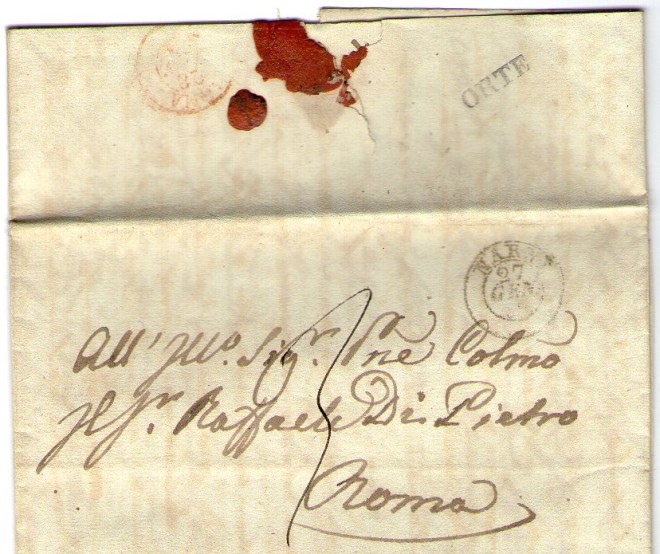 ORTE
NARNI
27
GEN
All' Illo. Sigr. Pne Colmo
Il Sr. Raffaele Di Pietro
Roma